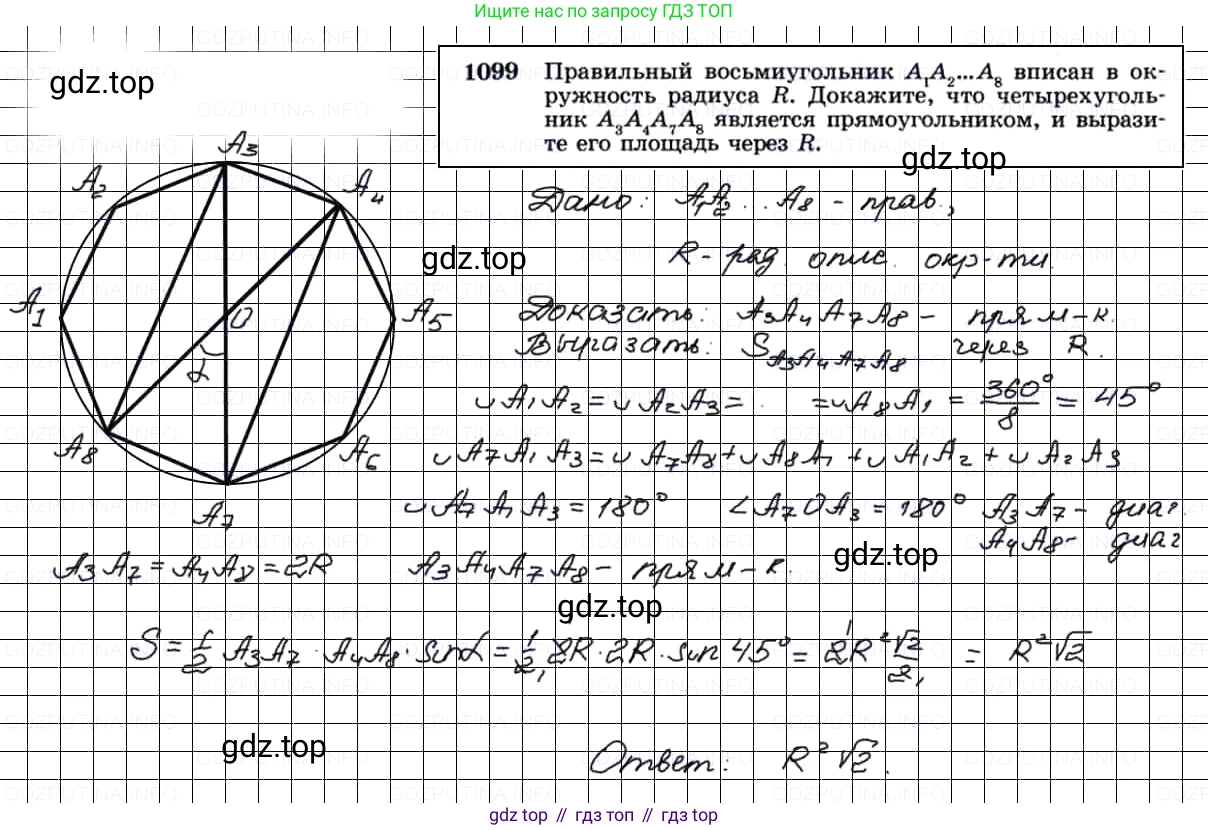 Ищите нас по запросу ГДЗ ТОП
gdz.top
1099 Правильный восьмиугольник A₁A₂...A₈ вписан в ок-
ружность радиуса R. Докажите, что четырехуголь-
ник A₃A₄A₇A₈ является прямоугольником, и вырази-
те его площадь через R.
gdz.top
A₃
A₂
A₄
Дано: A₁A₂...A₈ - прав.,
gdz.top
R - рад. опис. окр-ти.
A₁
O
A₅
α
A₈
A₆
A₇
Доказать: A₃A₄A₇A₈ - прям-к.
Выразать: S A₃A₄A₇A₈ через R.
∪A₁A₂ = ∪A₂A₃ = . =∪A₈A₁ = 360°/8 = 45°
∪A₇A₁A₃ = ∪A₇A₈+∪A₈A₁ +∪A₁A₂ + ∪A₂A₃
∪A₇A₁A₃ = 180° ∠A₇OA₃ = 180° A₃A₇ - диаг.
A₄A₈ - диаг
gdz.top
A₃A₇ = A₄A₈ = 2R A₃A₄A₇A₈ - прям-к.
gdz.top
S = 1/2 A₃A₇ · A₄A₈ · sinα = 1/2 2R · 2R · sin 45° = 2R² √2/2 = R²√2
gdz.top
Ответ: R²√2.
gdz top // гдз топ // gdz top
GDZPUTINA.INFO